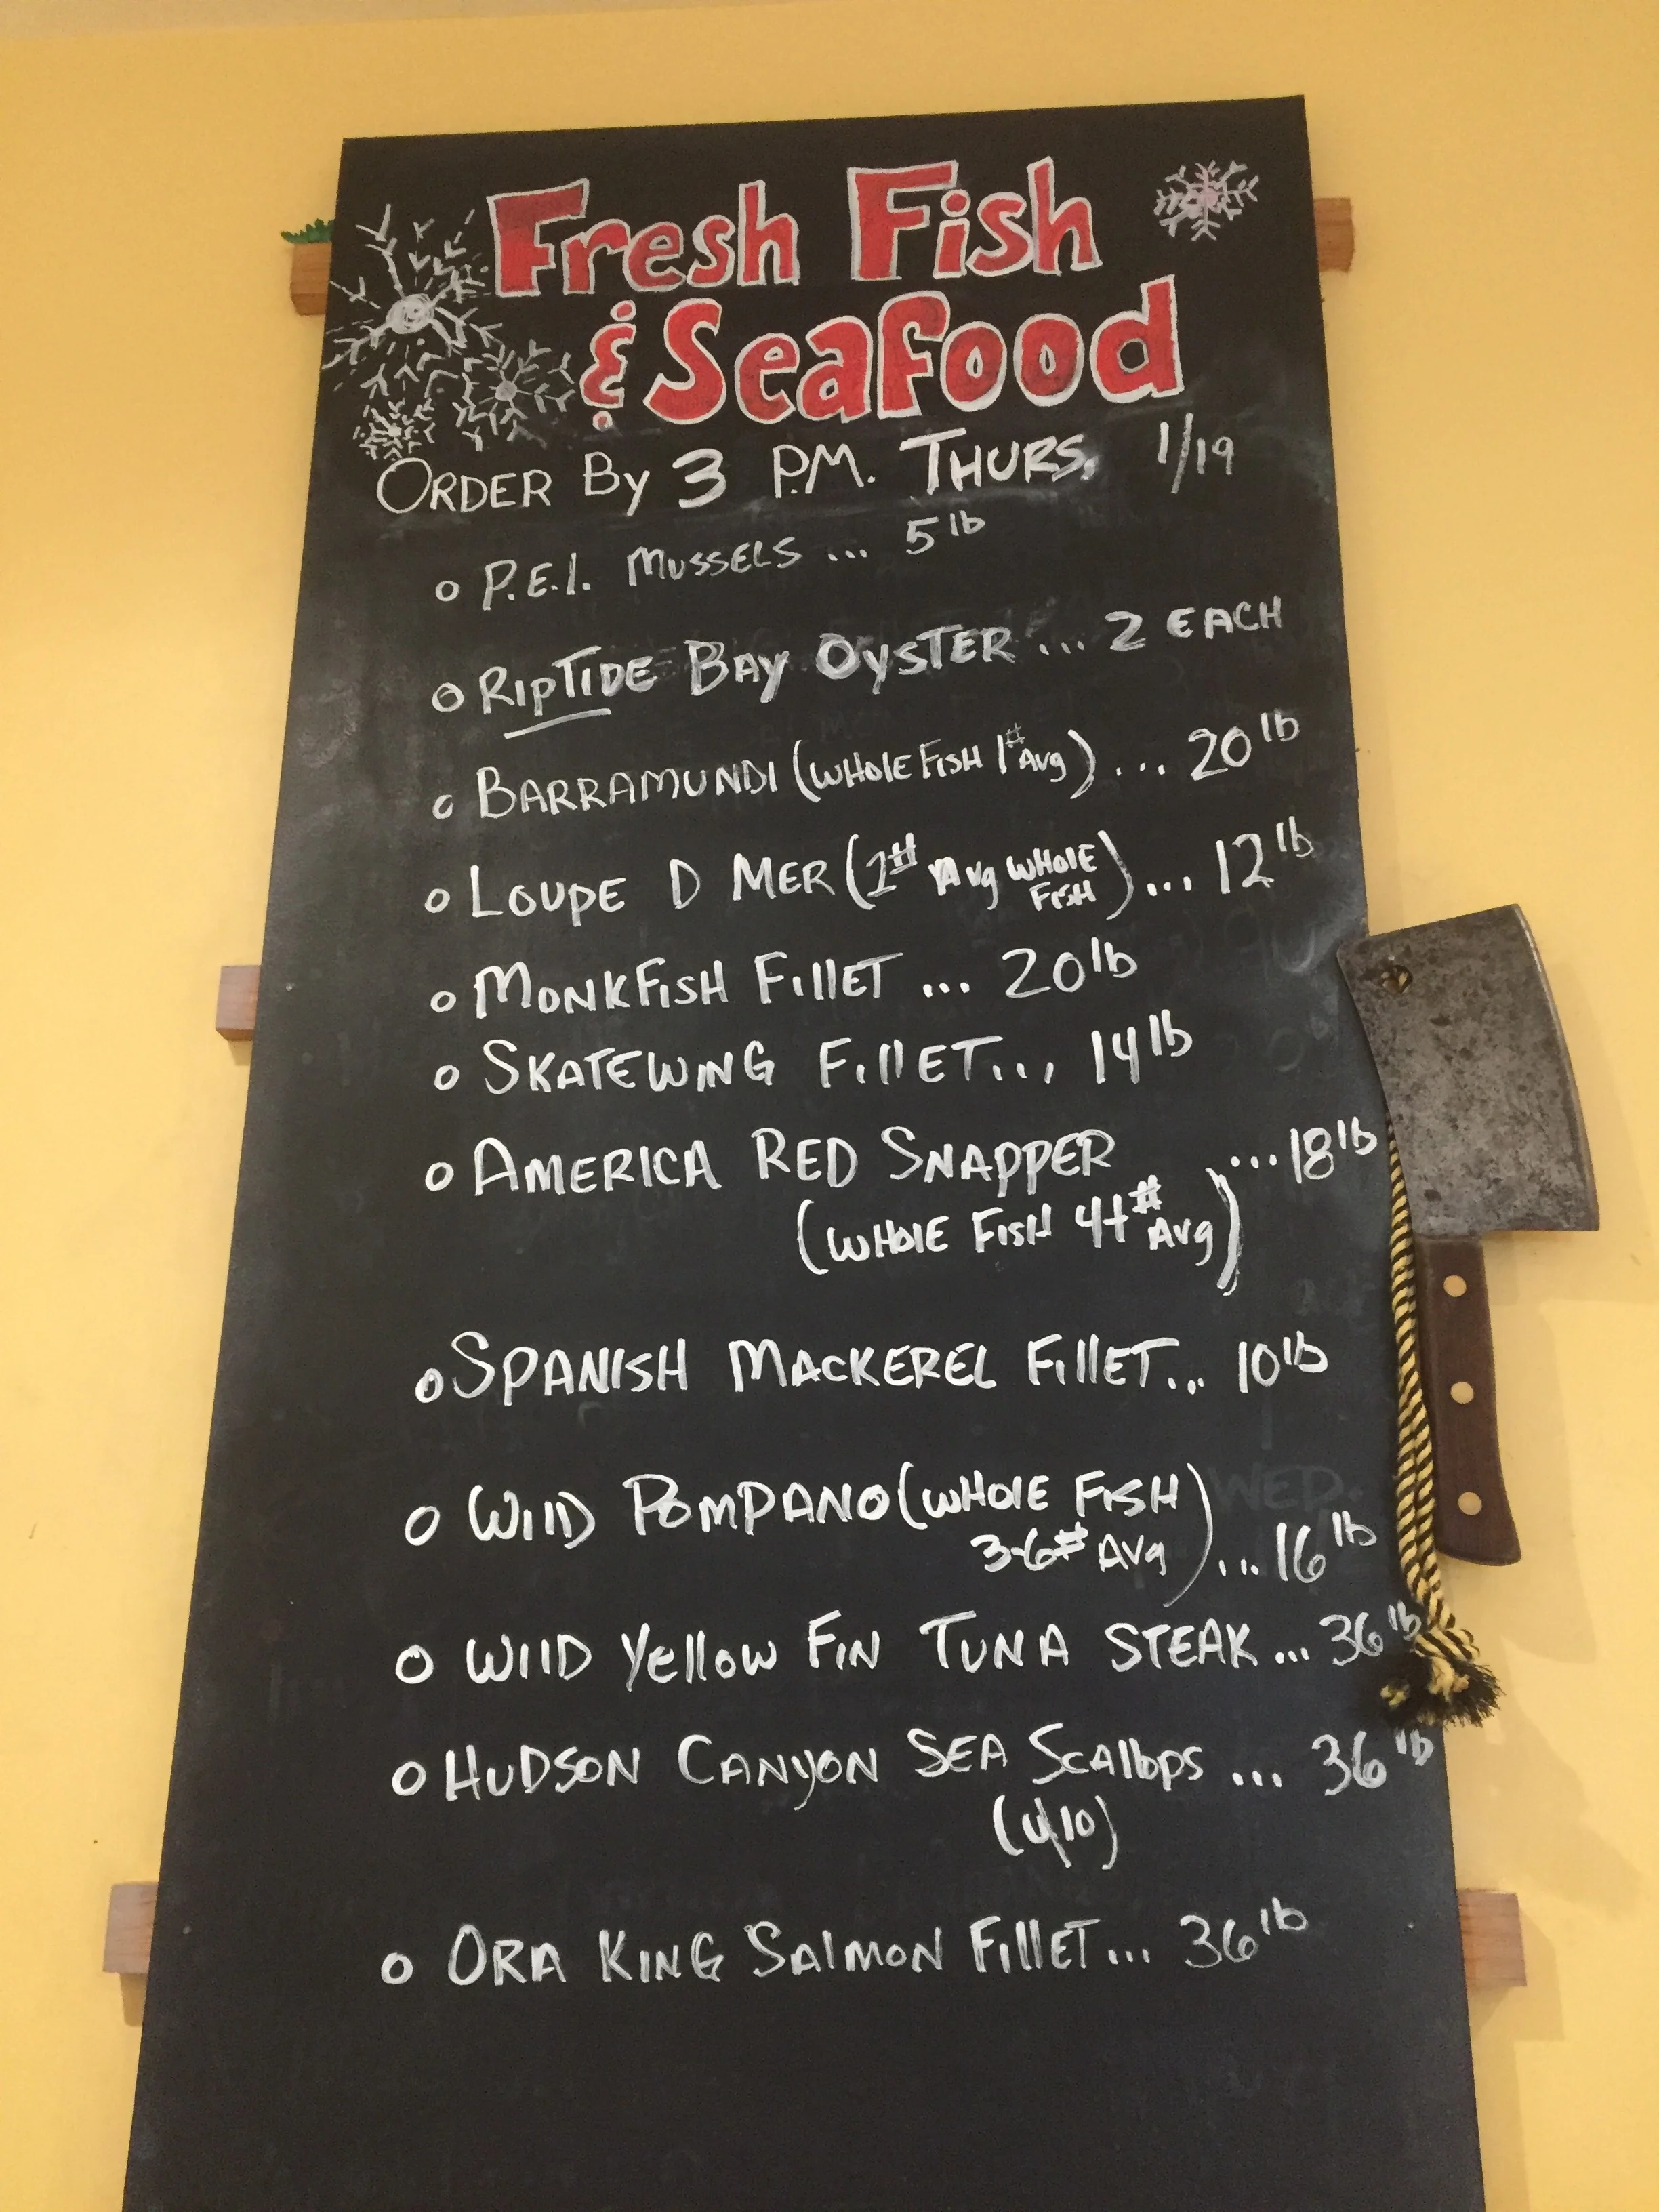 Fresh Fish
& Seafood
ORDER By 3 P.M. THURS. 1/19
P.E.I. MUSSELS ... 5 lb
RIPTIDE BAY OYSTER ... 2 EACH
BARRAMUNDI (WHOLE FISH 1# Avg) ... 20 lb
LOUPE D MER (1# Avg WHOLE FISH) ... 12 lb
MONKFISH FILLET ... 20 lb
SKATEWING FILLET... 14 lb
AMERICA RED SNAPPER ... 18 lb
(WHOLE FISH 4+# Avg)
SPANISH MACKEREL FILLET... 10 lb
WILD POMPANO (WHOLE FISH
3-6# AVg) ... 16 lb
WILD Yellow FIN TUNA STEAK ... 36 lb
HUDSON CANYON SEA SCAllOPS ... 36 lb
(U/10)
ORA KING SALMON FILLET... 36 lb